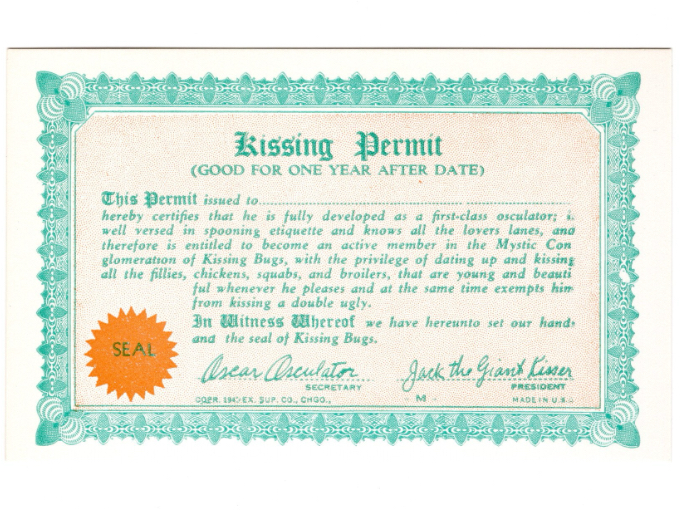 Kissing Permit
(GOOD FOR ONE YEAR AFTER DATE)
This Permit issued to
hereby certifies that he is fully developed as a first-class osculator; i
well versed in spooning etiquette and knows all the lovers lanes, and
therefore is entitled to become an active member in the Mystic Con
glomeration of Kissing Bugs, with the privilege of dating up and kissing
all the fillies, chickens, squabs, and broilers, that are young and beauti
ful whenever he pleases and at the same time exempts him
from kissing a double ugly.
In Witness Whereof we have hereunto set our hand
and the seal of Kissing Bugs.
SEAL
Oscar Osculator Jack the Giant Kisser
SECRETARY PRESIDENT
COPR. EX. SUP. CO., CHGO., M MADE IN U.S.